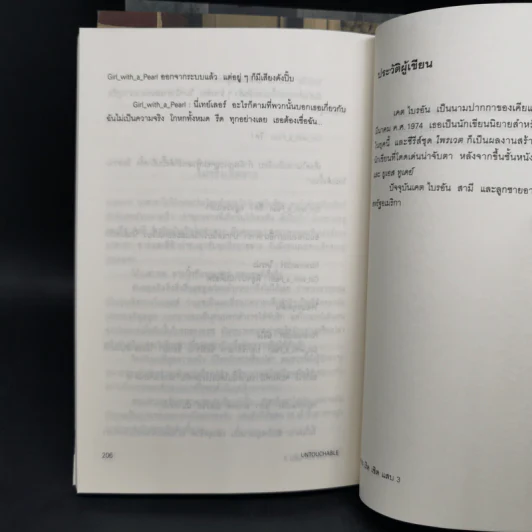 Girl_with_a_Pearl ออกจากระบบแล้ว แต่อยู่ ๆ ก็มีเสียงดังปิ๊บ
Girl_with_a_Pearl : นี่เทย์เลอร์ อะไรก็ตามที่พวกนั้นบอกเธอเกี่ยวกับ
ฉันไม่เป็นความจริง โกหกทั้งหมด รีด ทุกอย่างเลย เธอต้องเชื่อฉัน
206
UNTOUCHABLE
ประวัติผู้เขียน
เคต ไบรอัน เป็นนามปากกาของเคีย
มีนาคม ค.ศ.1974 เธอเป็นนักเขียนนิยายสำห
ในยุคนี้ และซีรีส์ชุด ไพรเวต ก็เป็นผลงานสร้า
นักเขียนที่โดดเด่นน่าจับตา หลังจากขึ้นชั้นหนัง
และ ยูเอส ทูเดย์
ปัจจุบันเคต ไบรอัน สามี และลูกชายอา
สหรัฐอเมริกา
เซ็ต แสบ 3